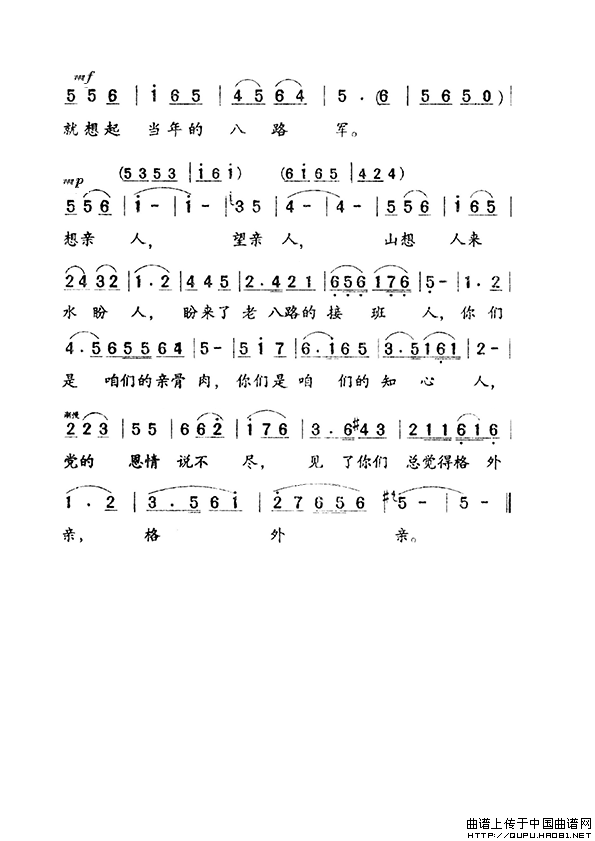 mf
5 5 6 | i 6 5 | 4 5 6 4 | 5 . (6 | 5 6 5 0) |
就想起 当年的 八 路 军。
mp (5 3 5 3 | i 6 i) (6 i 6 5 | 4 2 4)
5 5 6 | i - | i - | 3 5 | 4 - | 4 - | 5 5 6 | i 6 5 |
想亲 人， 望亲人， 山想 人来
2 4 3 2 | 1 . 2 | 4 4 5 | 2 . 4 2 1 | 6 5 6 1 7 6 | 5 - | 1 . 2 |
水盼 人，盼来了老八路的接 班 人，你们
4 . 5 6 5 5 6 4 | 5 - | 5 1 7 | 6 . 1 6 5 | 3 . 5 1 6 1 | 2 - |
是 咱们的亲骨肉，你们是咱 们的知心人，
渐慢
2 2 3 | 5 5 | 6 6 2 | 1 7 6 | 3 . 6 #4 3 | 2 1 1 6 1 6 |
党的 恩情 说不 尽， 见 了你们 总觉得格外
1 . 2 | 3 . 5 6 i | 2 7 6 5 6 | 5 - | 5 - ‖
亲， 格 外 亲。
曲谱上传于中国曲谱网
http://QUPU.HAO81.NET